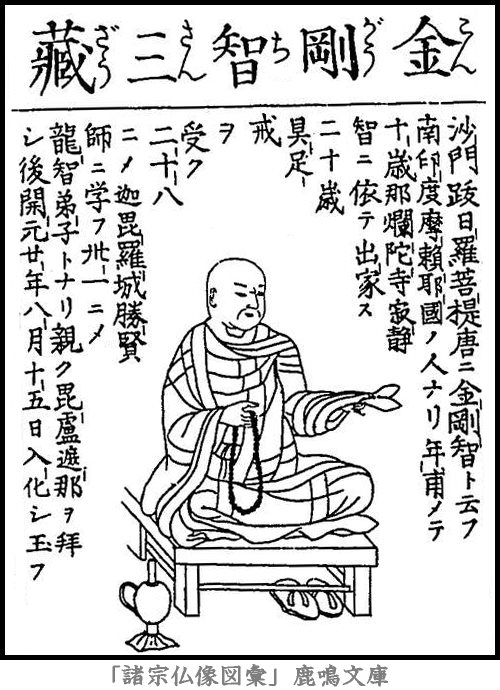 金剛智三藏
こんがうちさんざう
沙門跋日羅菩提唐ニ金剛智ト云フ
南印度摩頼耶國ノ人ナリ年甫メテ
十歳那爛陀寺寂静
智ニ依テ出家ス
二十歳
具足
戒
ヲ
受ク
二十八
ニメ迦毘羅城勝賢
師ニ学フ卅一ニメ
龍智弟子トナリ親ク毘盧遮那ヲ拜
シ後開元廿年八月十五日入化シ玉フ
「諸宗仏像図彙」鹿鳴文庫